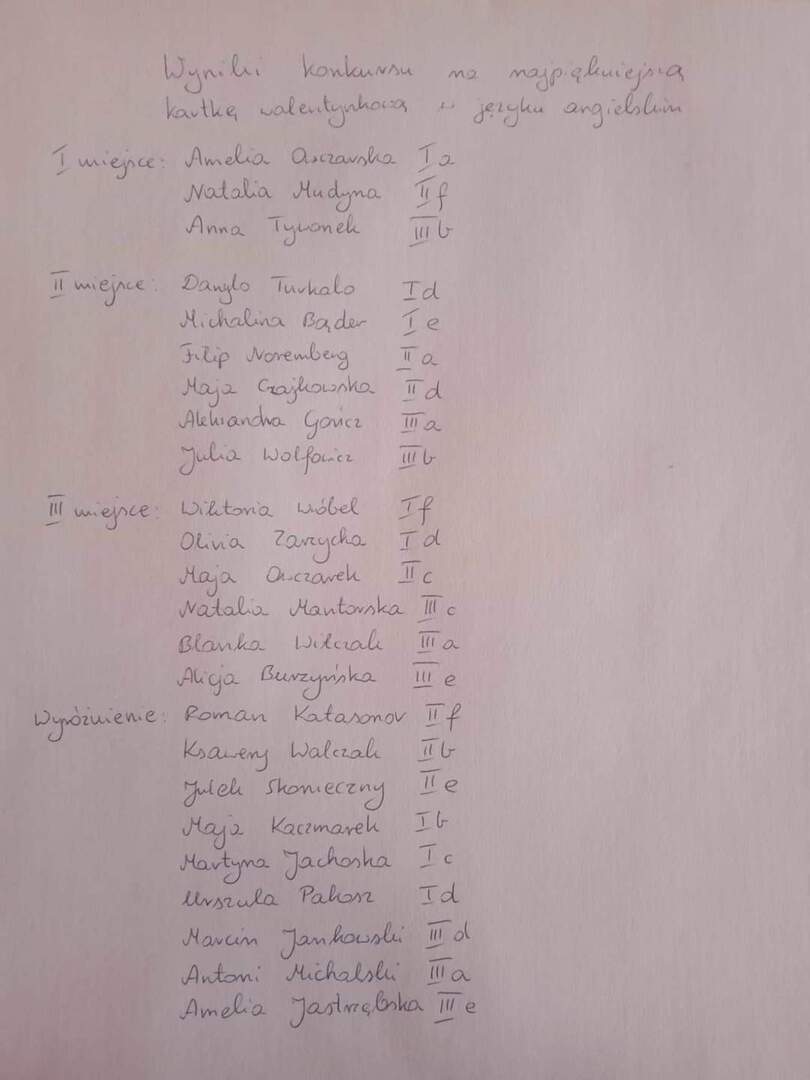 Wyniki konkursu na najpiękniejszą
kartkę walentynkową w języku angielskim
I miejsce: Amelia Owczarska I a
Natalia Mudyna II f
Anna Tyronek III b
II miejsce: Danylo Turkalo I d
Michalina Bąder I e
Filip Noremberg II a
Maja Czajkowska II d
Aleksandra Goricz III a
Julia Wolfowicz III b
III miejsce: Wiktoria Wróbel I f
Olivia Zarzycha I d
Maja Owczarek II c
Natalia Mantorska III c
Blanka Wilczak III a
Alicja Burzyńska III e
Wyróżnienie: Roman Katasonov II f
Ksawery Walczak II b
Julek Skonieczny II e
Maja Kaczmarek I b
Martyna Jachoska I c
Urszula Pakosz I d
Marcin Jankowski III d
Antoni Michalski III a
Amelia Jastrzębska III e